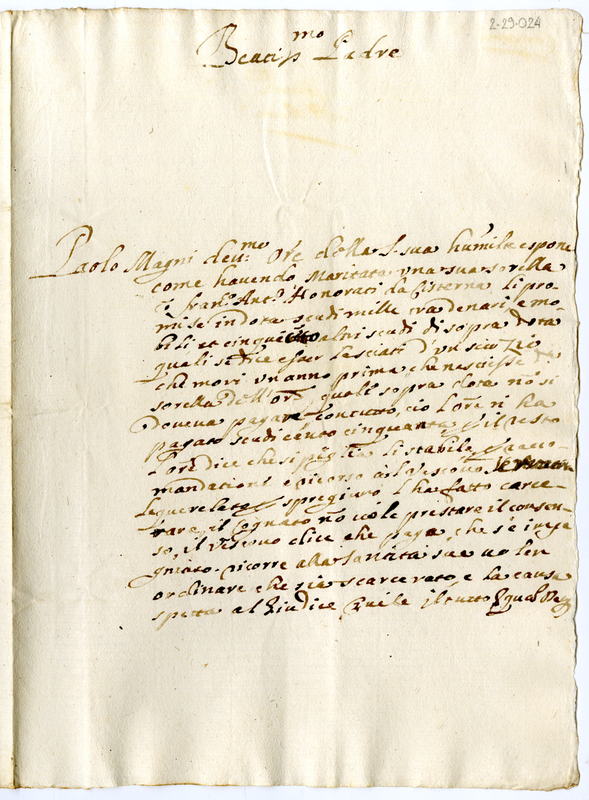 2-29-024
Beatiss.mo Padre
Paolo Magni deu.mo Ore della S. sua humilte espone
come havendo Maritata una sua sorella
à fran.o Ant.o Honorati da Cisterna li pro
mise in dota scudi mille tra denari e mo
bili et cinque altri scudi di sopra dota
quali si dice esser lasciati d'un suo Zio
che morì un anno prima che nascesse
sorella dell'ore, quall sopra dota nō si
doveva pagare con tutto ciò l'ore ni ha
pagato scudi cento cinquanta e p il resto
l'ore dice che si piglia li stabile,
mandationi e ricorso à l Vescovo
le querelate p spregiuro l'ha fatto carce-
rare, il Cognato nō vole prestare il consen-
so, il vescovo dice che paga, che s'è impe
gniato. ricorre alla Santità sua vo ler
ordinare che sia scarcerato, e la causa
spetta al Giudice Civile il tutto